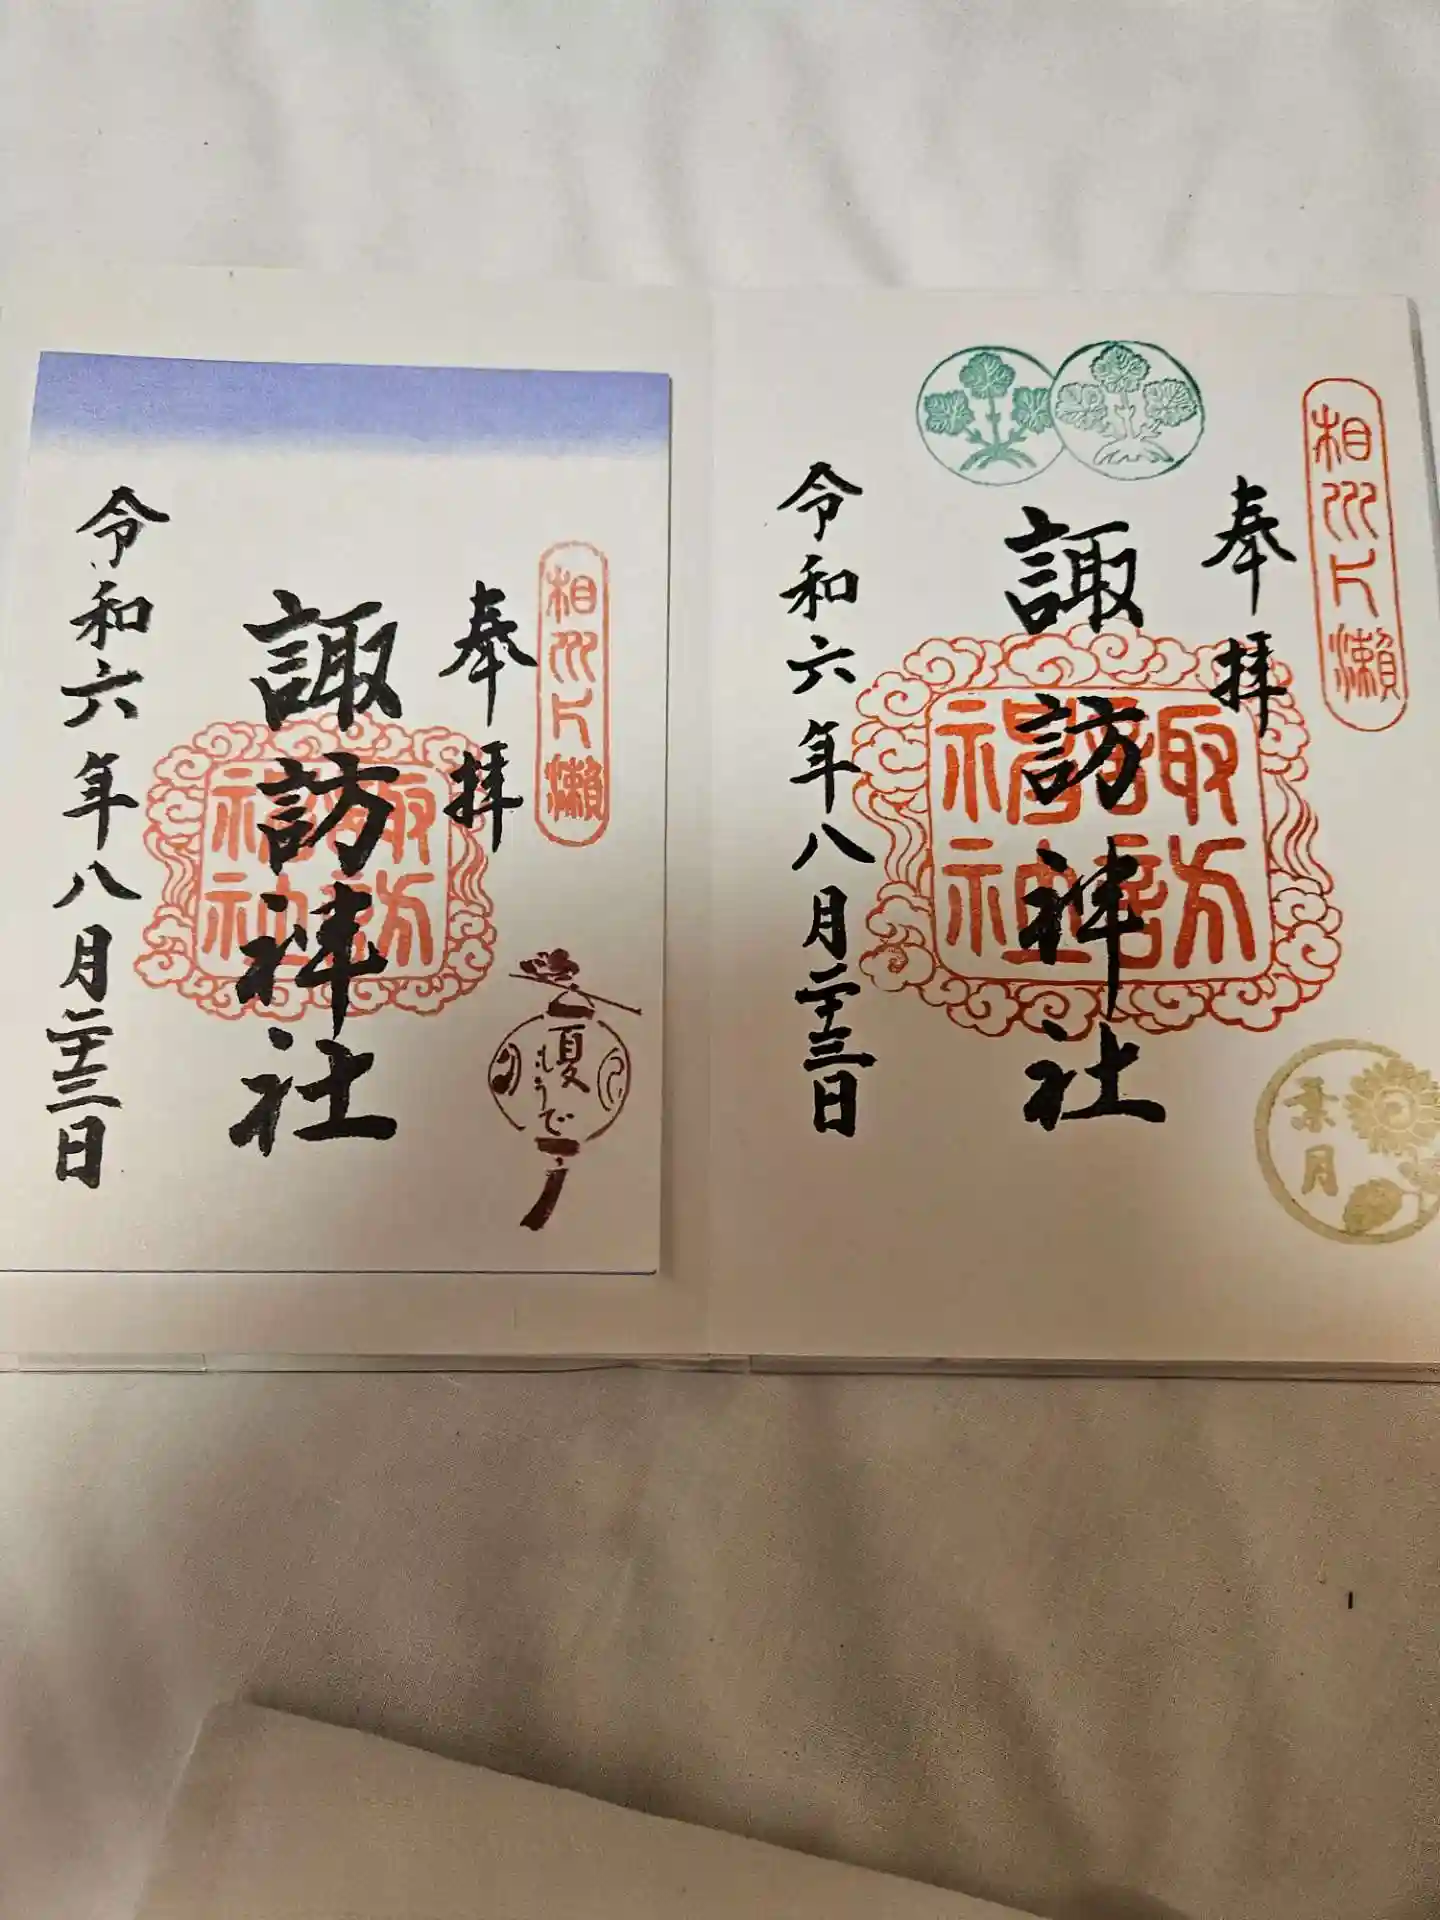 相州片瀬
奉拝
諏訪神社
諏訪
神社
令和六年八月二十三日
葉月
相州片瀬
奉拝
諏訪神社
諏訪
神社
令和六年八月二十三日
夏
もうで